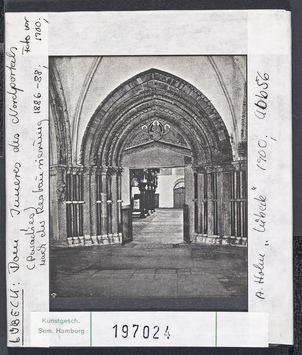 LÜBECK: Dom, Inneres des Nordportals
(Paradies) Foto vor
nach der Restaurierung 1886-88; 1900.
A. Holm „Lübeck“ 1900, Abb 56
Kunstgesch.
Sem. Hamburg
197024